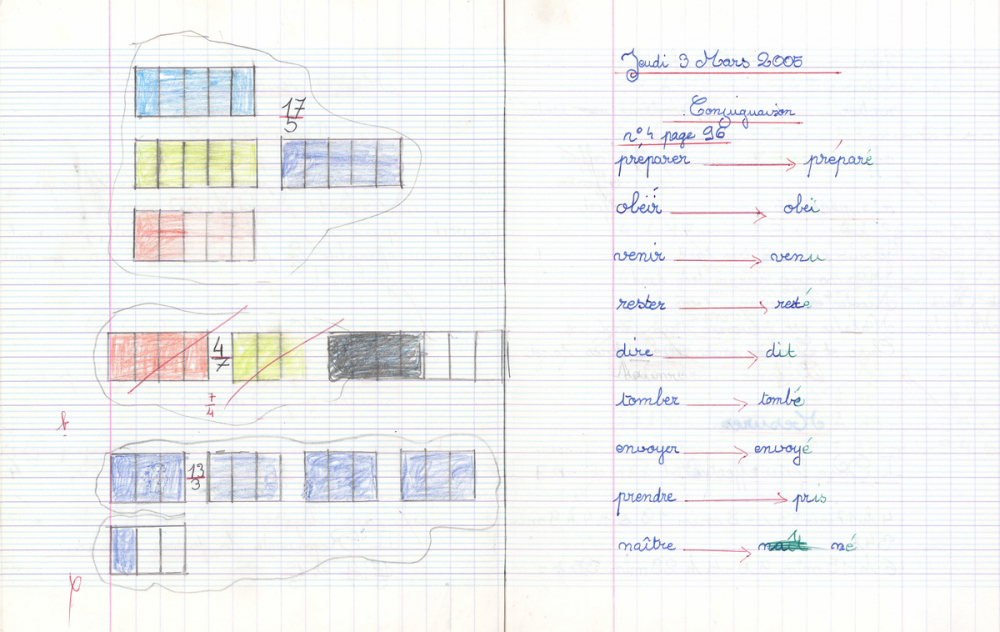 17
5
4
7
7
4
13
3
Jeudi 3 Mars 2005
Conjuguaison
n°4 page 96
préparer → préparé
obéir → obéi
venir → venu
rester → resté
dire → dit
tomber → tombé
envoyer → envoyé
prendre → pris
naître → né